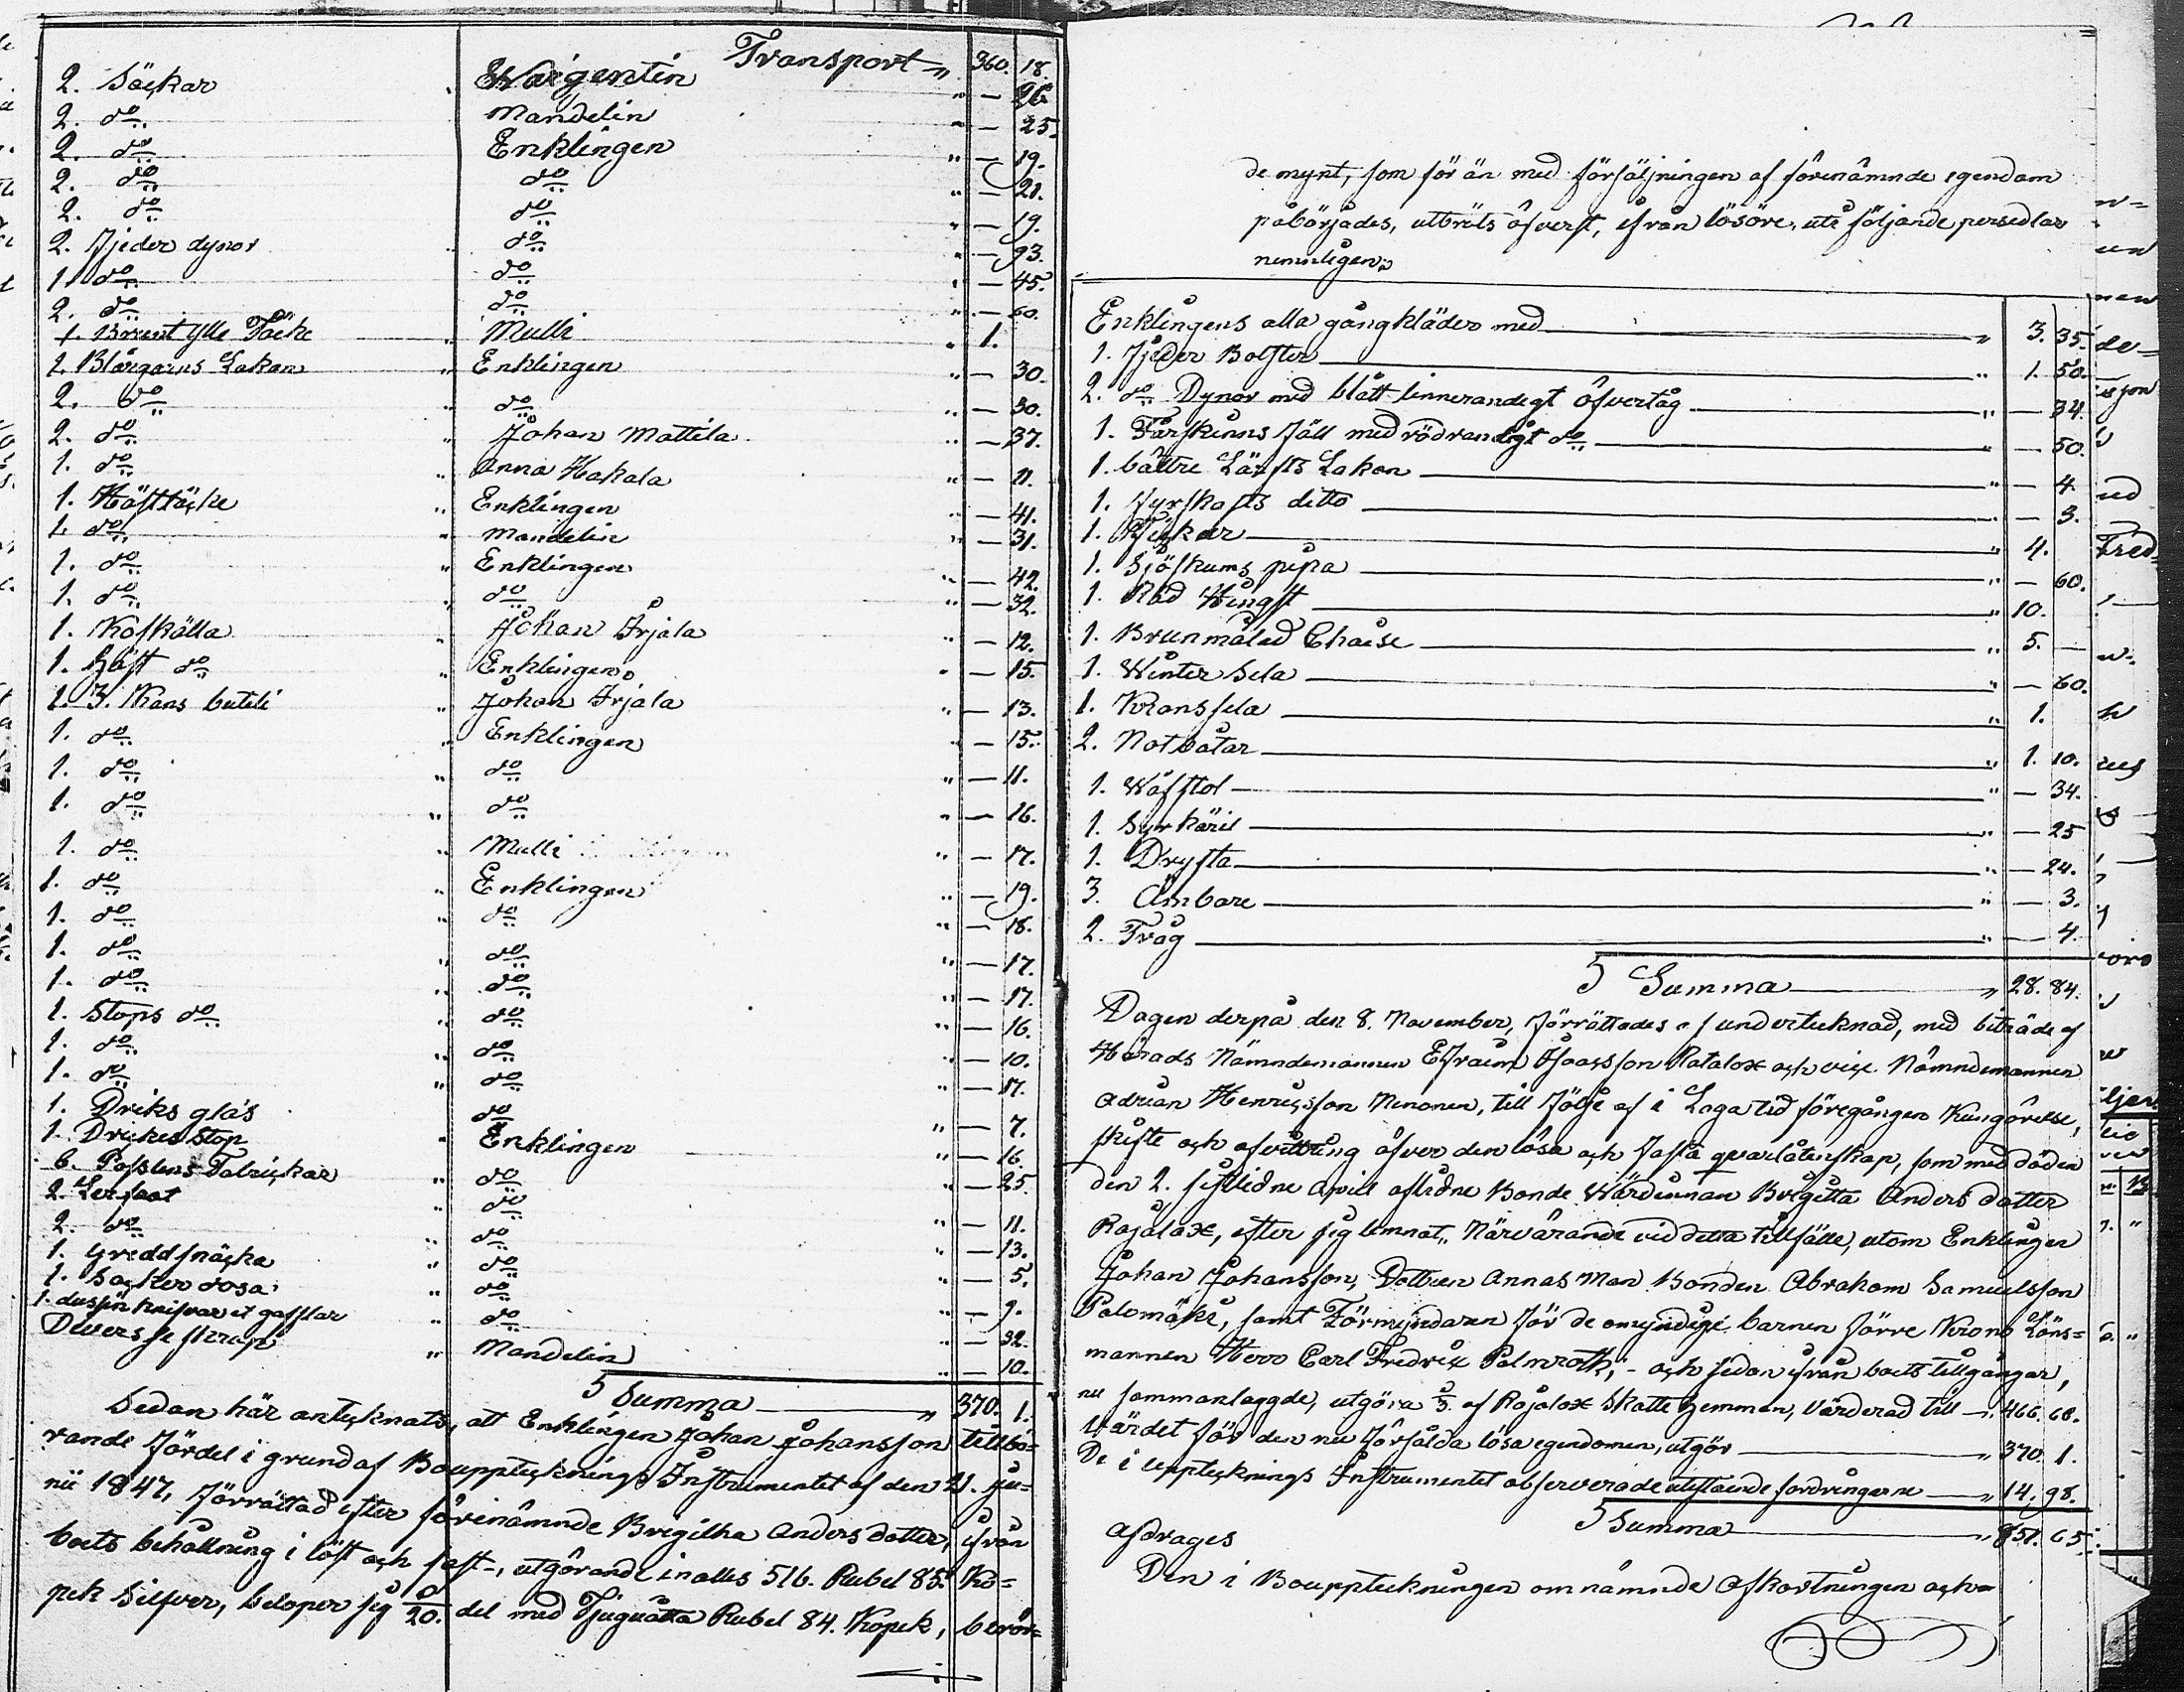 Transport " 360. 18.
2. Säckar Wargentin " — 26.
2. do Mandelin " — 25.
2. do Enklingen " — 19.
2. do do " — 21.
2. do do " — 19.
2. Fjeder dynor do " — 93.
1. do do " — 45.
2. do do " — 60.
1. Brunt Ylle Täcke Mulli " 1.
2. Blårgarns Lakan " Enklingen " — 30.
2. do " do " — 30.
2. do " Johan Mattila " — 37.
1. do " Anna Hakala " — 11.
1. Hästtäcke " Enklingen " — 41.
1. do " Mandelin " — 31.
1. do " Enklingen " — 42.
1. do " do " — 32.
1. Koskälla " Johan Irjala " — 12.
1. Häst do " Enklingen " — 15.
1. 3. Kans butelj " Johan Irjala " — 13.
1. do " Enklingen " — 15.
1. do " do " — 11.
1. do " do " — 16.
1. do " Mulli " — 17.
1. do " Enklingen " — 19.
1. do " do " — 18.
1. do " do " — 17.
1. do " do " — 17.
1. Stops do " do " — 16.
1. do " do " — 10.
1. do " do " — 17.
1. Driks glas do " — 7.
1. Drickes Stop " Enklingen " — 16.
6. Talrickar " do " — 25.
2. Lerfat " do " — 11.
2. do " do " — 13.
1. Gräddsnäcka " do " — 5.
1. Sockerdosa " do " — 9.
1. dussin knifvar et gafflar " do " — 32.
Diverse skrap " Mandelin " — 10.
Summa — " 370. 1.
Sedan här antecknats, att Enklingen Johan Johansson tillhö=
rande Fördel i grund af Bouppteknings Instrumentet af den 21. Ju=
nii 1847, Förrättad efter förenämnde Brigitha Anders dotter, ifrån
boets behållning i löst och fast, utgörande inalles 516. Rubel 85. Ko=
pek Silfver, beloper sig 1/20. del med Tjuguåtta Rubel 84. Kopek, berör=
de mynt, som för än med försäljningen af förenämnde egendom
påbörjades, utbröts öfverst, ifrån lösöre, uti följande persedlar
nemnligen:
Enklingens alla gångkläder med — " 3. 35.
1. Fjeder Bolster — " 1. 50.
2. do Dynor med blått linnerandigt Öfvertåg — " — 34.
1. Fårskinns Fäll med rödrandigt do — " — 50.
1. bättre Lärfts Lakan — " — 4.
1. Fyrskafts ditto — " — 3.
1. — " 4.
1. Sjöskums pipa — " — 60.
1. Röd Hingst — " 10.
1. Brunmålad Chaise — " 5. —
1. Winter Sela — " — 60.
1. Kranssela — " 1.
2. Notbåtar — " 1. 10.
1. Wäfstol — " — 34.
1. Syrkäril — " — 25
1. Drysta — " — 24.
3. Ämbare — " — 3.
2. Tråg — " — 4.
Summa — " 28. 84.
Dagen derpå den 8. November, Förrättades af undertecknad, med biträde af
Härads Nämndemannen Efraim Isaksson Ratalax och vice Nämndemannen
Adrian Henricsson Nenonen, till Följe af i Laga tid föregången Kungörelse,
skifte och afvittring öfver den lösa och fasta qvarlåtenskap, som med döden
den 2. sistlidne April aflidne Bonde Wärdinnan Brigitta Anders dotter
Rajalax, efter sig lemnat, Närvarande vid detta tillfälle, utom Enklingen
Johan Johansson, Dottren Annas Man Bonden Abraham Samuelsson
Palomäki, samt Förmyndaren för de omyndige barnen Förre Krono Läns=
mannen Herr Carl Fredric Palmroth; och sedan ifrån boets tillgångar,
nu sammanlagde, utgöra 2/3. af Rajalax Skatte Hemman, Värderad till — 466. 66.
Värdet för den nu försålda lösa egendomen, utgör — " 370. 1.
De i upptecknings Instrumentet observerade utestående fordringarne — " 14. 98.
Summa — " 851. 65.
Afdrages
Den i Bouppteckningen omnämnda Afkortningen och